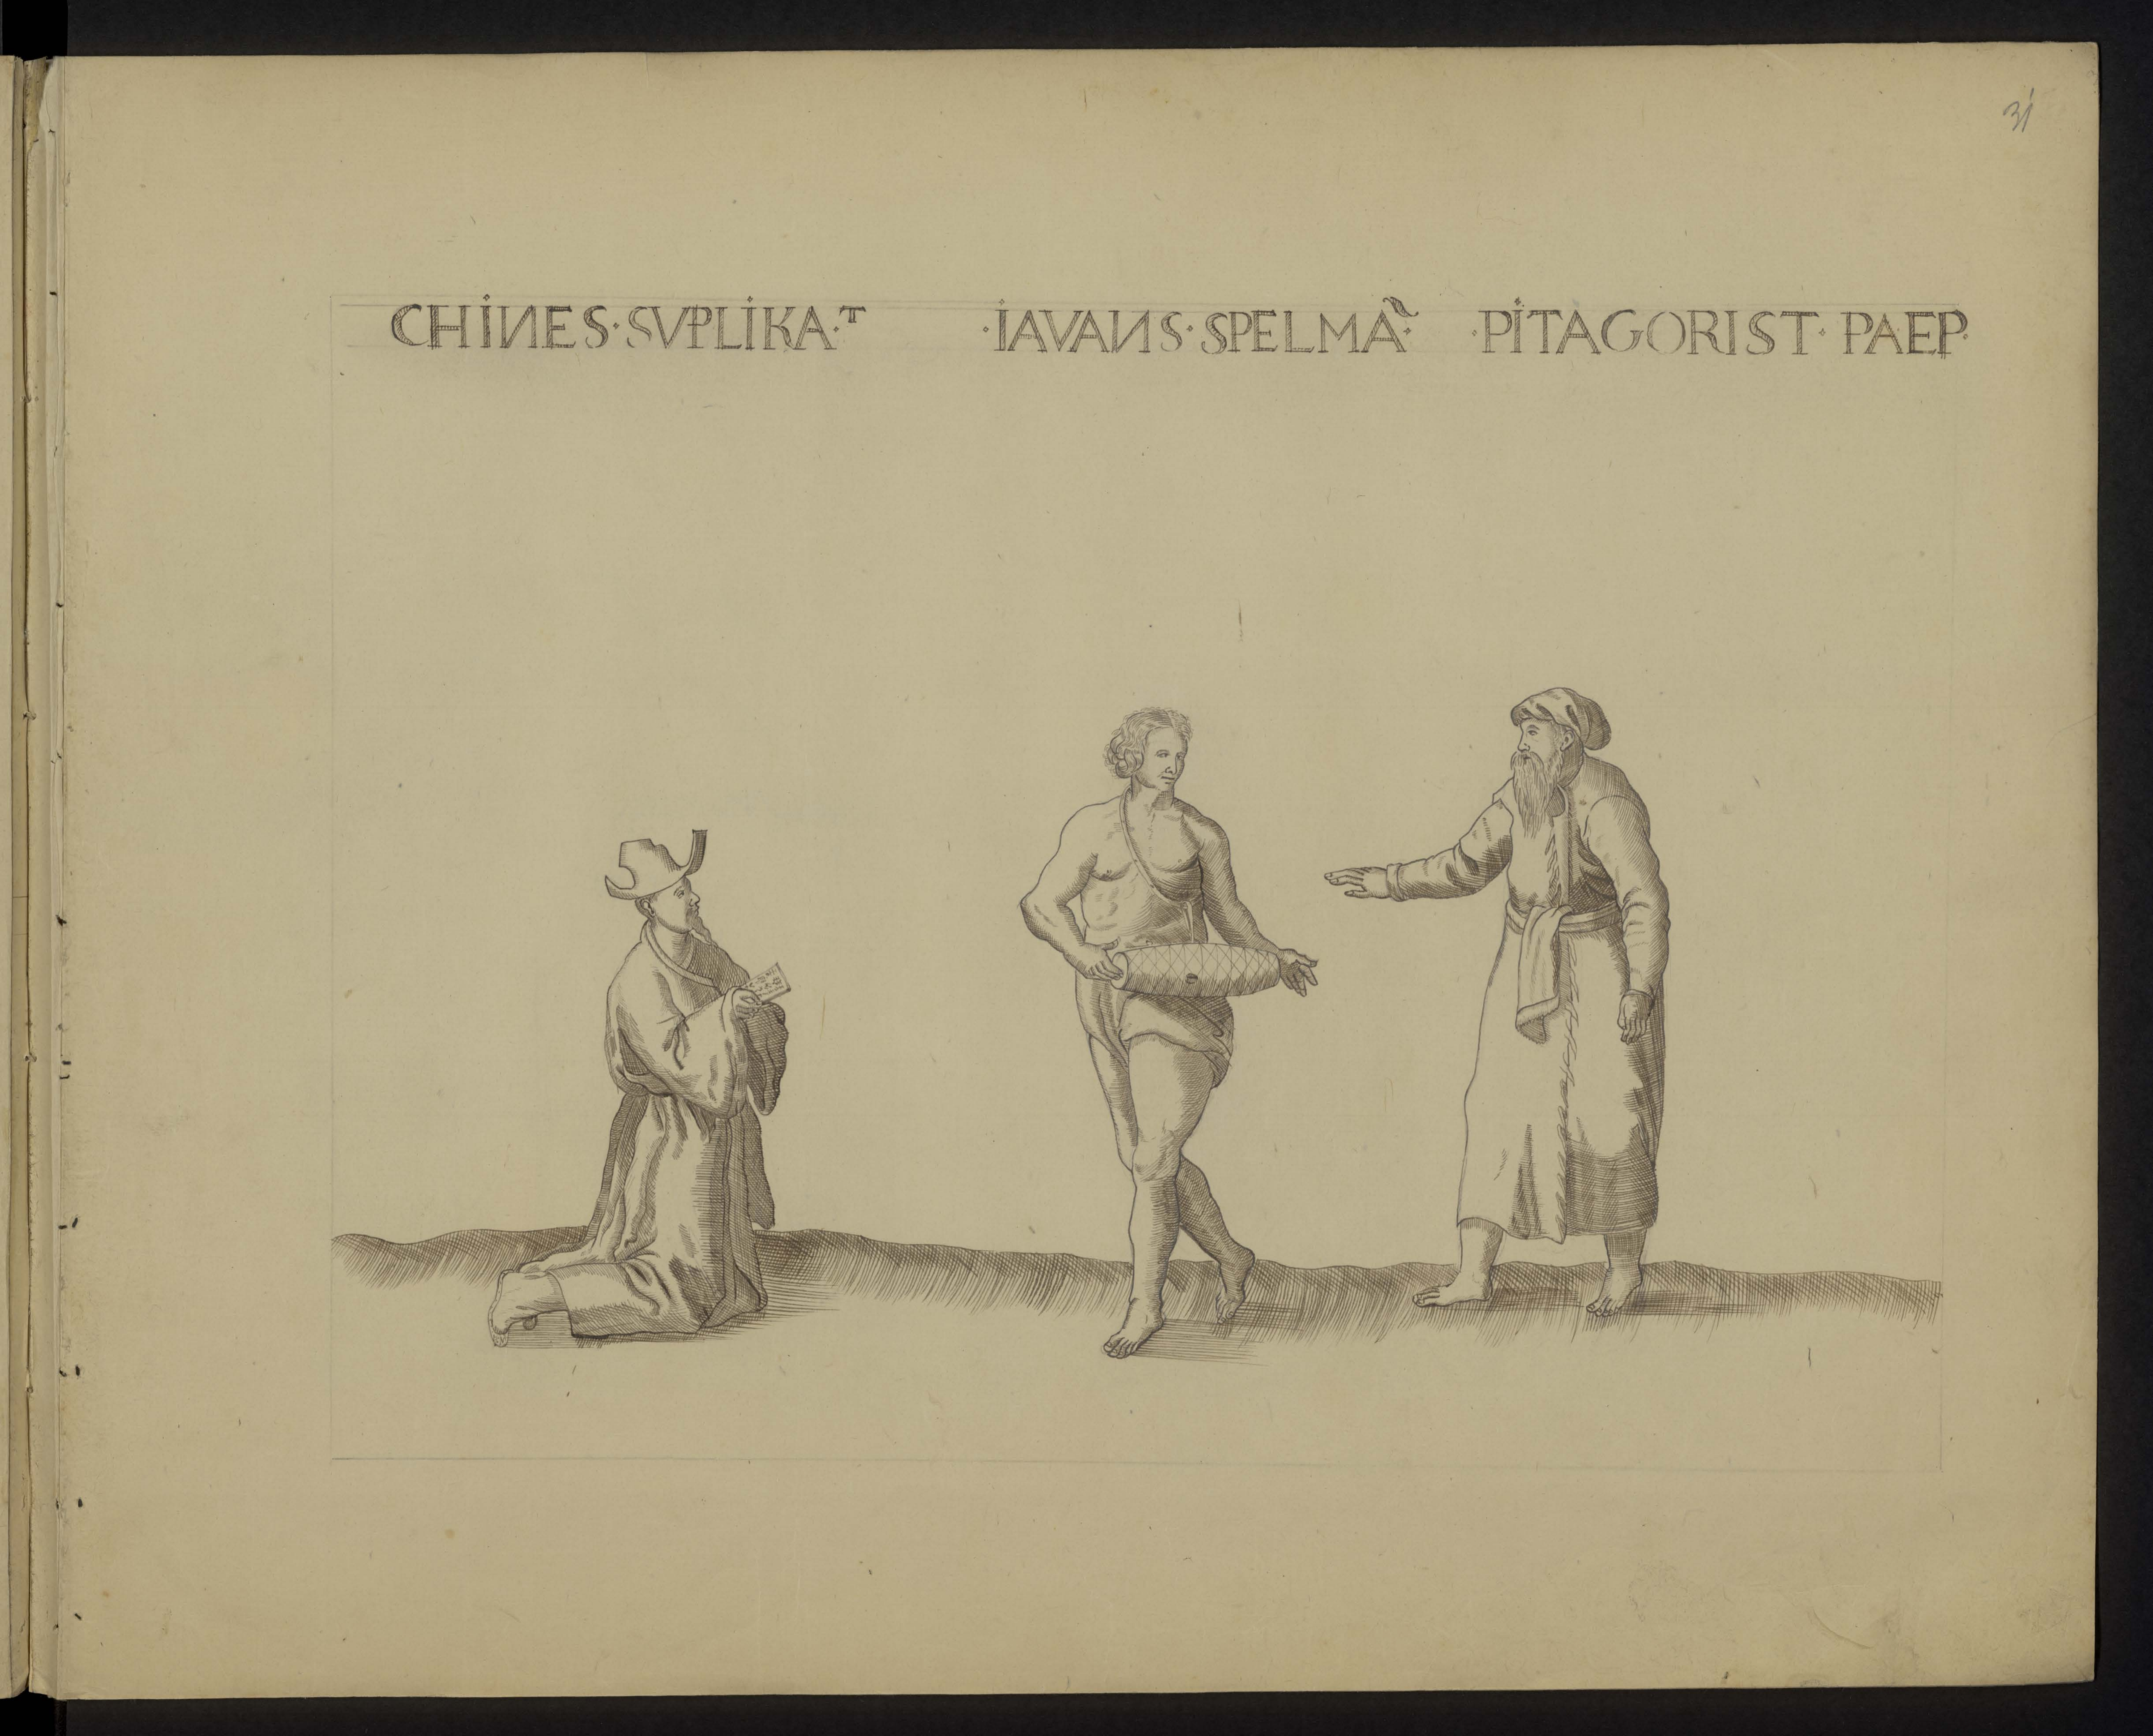 31
CHINES·SVPLIKA.ᵀ ·IAVANS·SPELMÃ: ·PITAGORIST·PAEP·